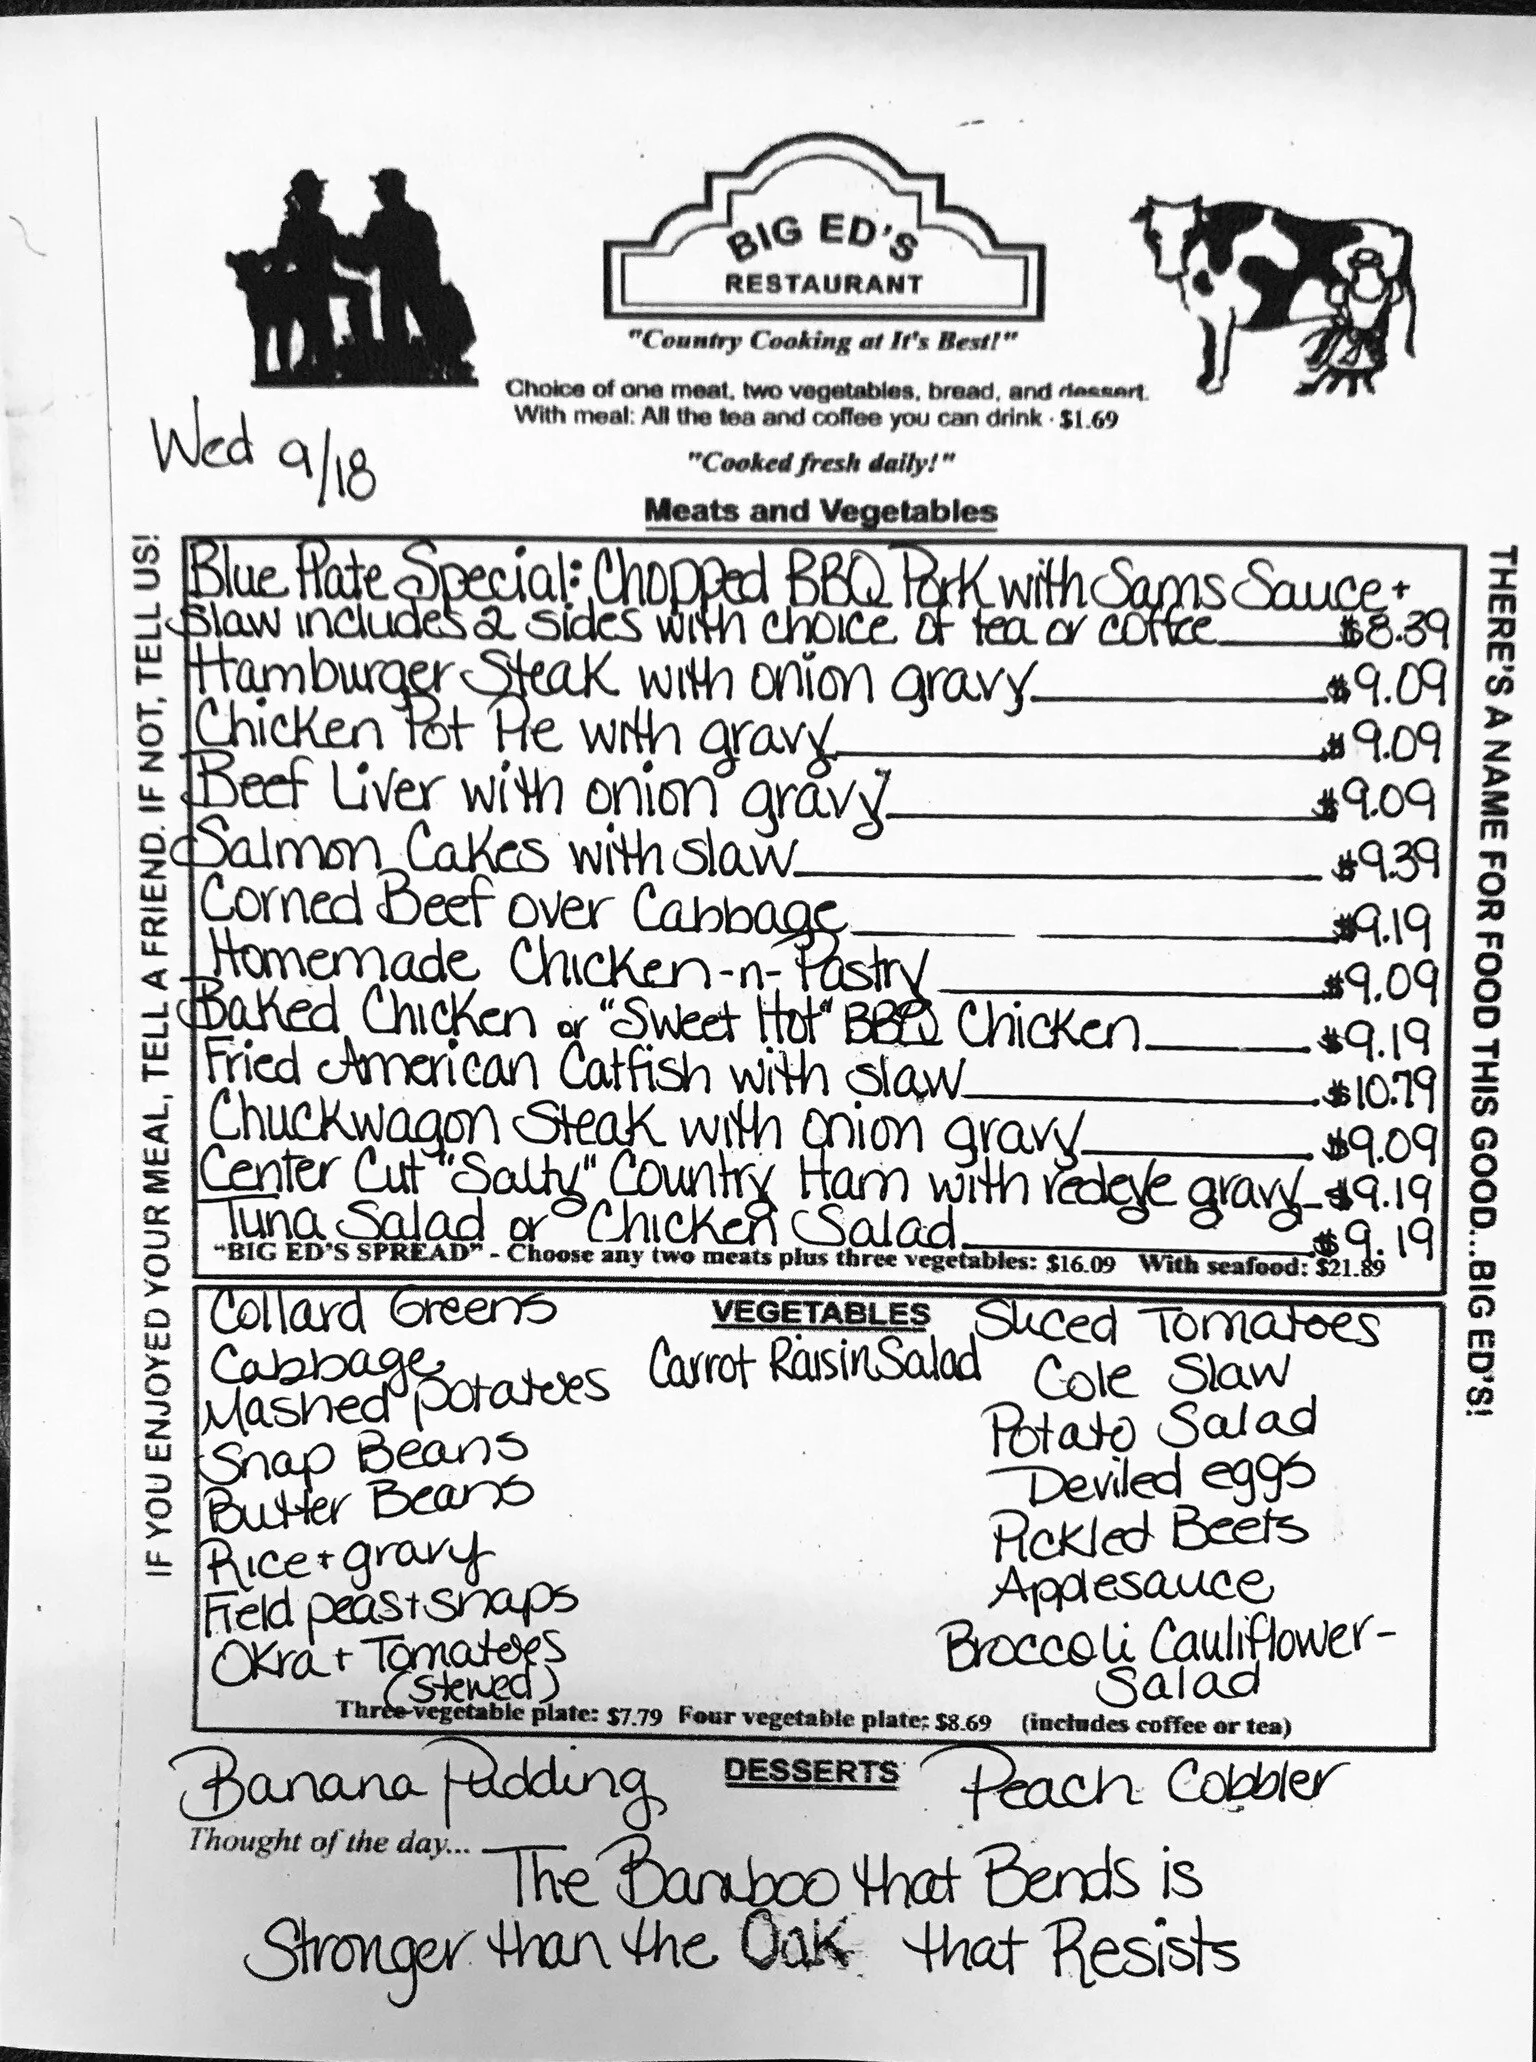 BIG ED'S
RESTAURANT
"Country Cooking at It's Best!"
Choice of one meat, two vegetables, bread, and dessert.
With meal: All the tea and coffee you can drink · $1.69
Wed 9/18
"Cooked fresh daily!"
Meats and Vegetables
IF YOU ENJOYED YOUR MEAL, TELL A FRIEND. IF NOT, TELL US!
Blue Plate Special: Chopped BBQ Pork with Sams Sauce +
Slaw includes 2 sides with choice of tea or coffee $8.39
Hamburger Steak with onion gravy $9.09
Chicken Pot Pie with gravy $9.09
Beef Liver with onion gravy $9.09
Salmon Cakes with slaw $9.39
Corned Beef over Cabbage $9.19
Homemade Chicken-n-Pastry $9.09
Baked Chicken or "Sweet Hot" BBQ Chicken $9.19
Fried American Catfish with slaw $10.79
Chuckwagon Steak with onion gravy $9.09
Center Cut "Salty" Country Ham with redeye gravy $9.19
Tuna Salad or Chicken Salad $9.19
"BIG ED'S SPREAD" - Choose any two meats plus three vegetables: $16.09 With seafood: $21.89
THERE'S A NAME FOR FOOD THIS GOOD...BIG ED'S!
VEGETABLES
Collard Greens
Cabbage
Mashed potatoes
Snap Beans
Butter Beans
Rice + gravy
Field peas + snaps
Okra + Tomatoes
(stewed)
Carrot Raisin Salad
Sliced Tomatoes
Cole Slaw
Potato Salad
Deviled eggs
Pickled Beets
Applesauce
Broccoli Cauliflower-
Salad
Three-vegetable plate: $7.79 Four vegetable plate: $8.69 (includes coffee or tea)
DESSERTS
Banana Pudding
Peach Cobbler
Thought of the day...
The Bamboo that Bends is
Stronger than the Oak that Resists